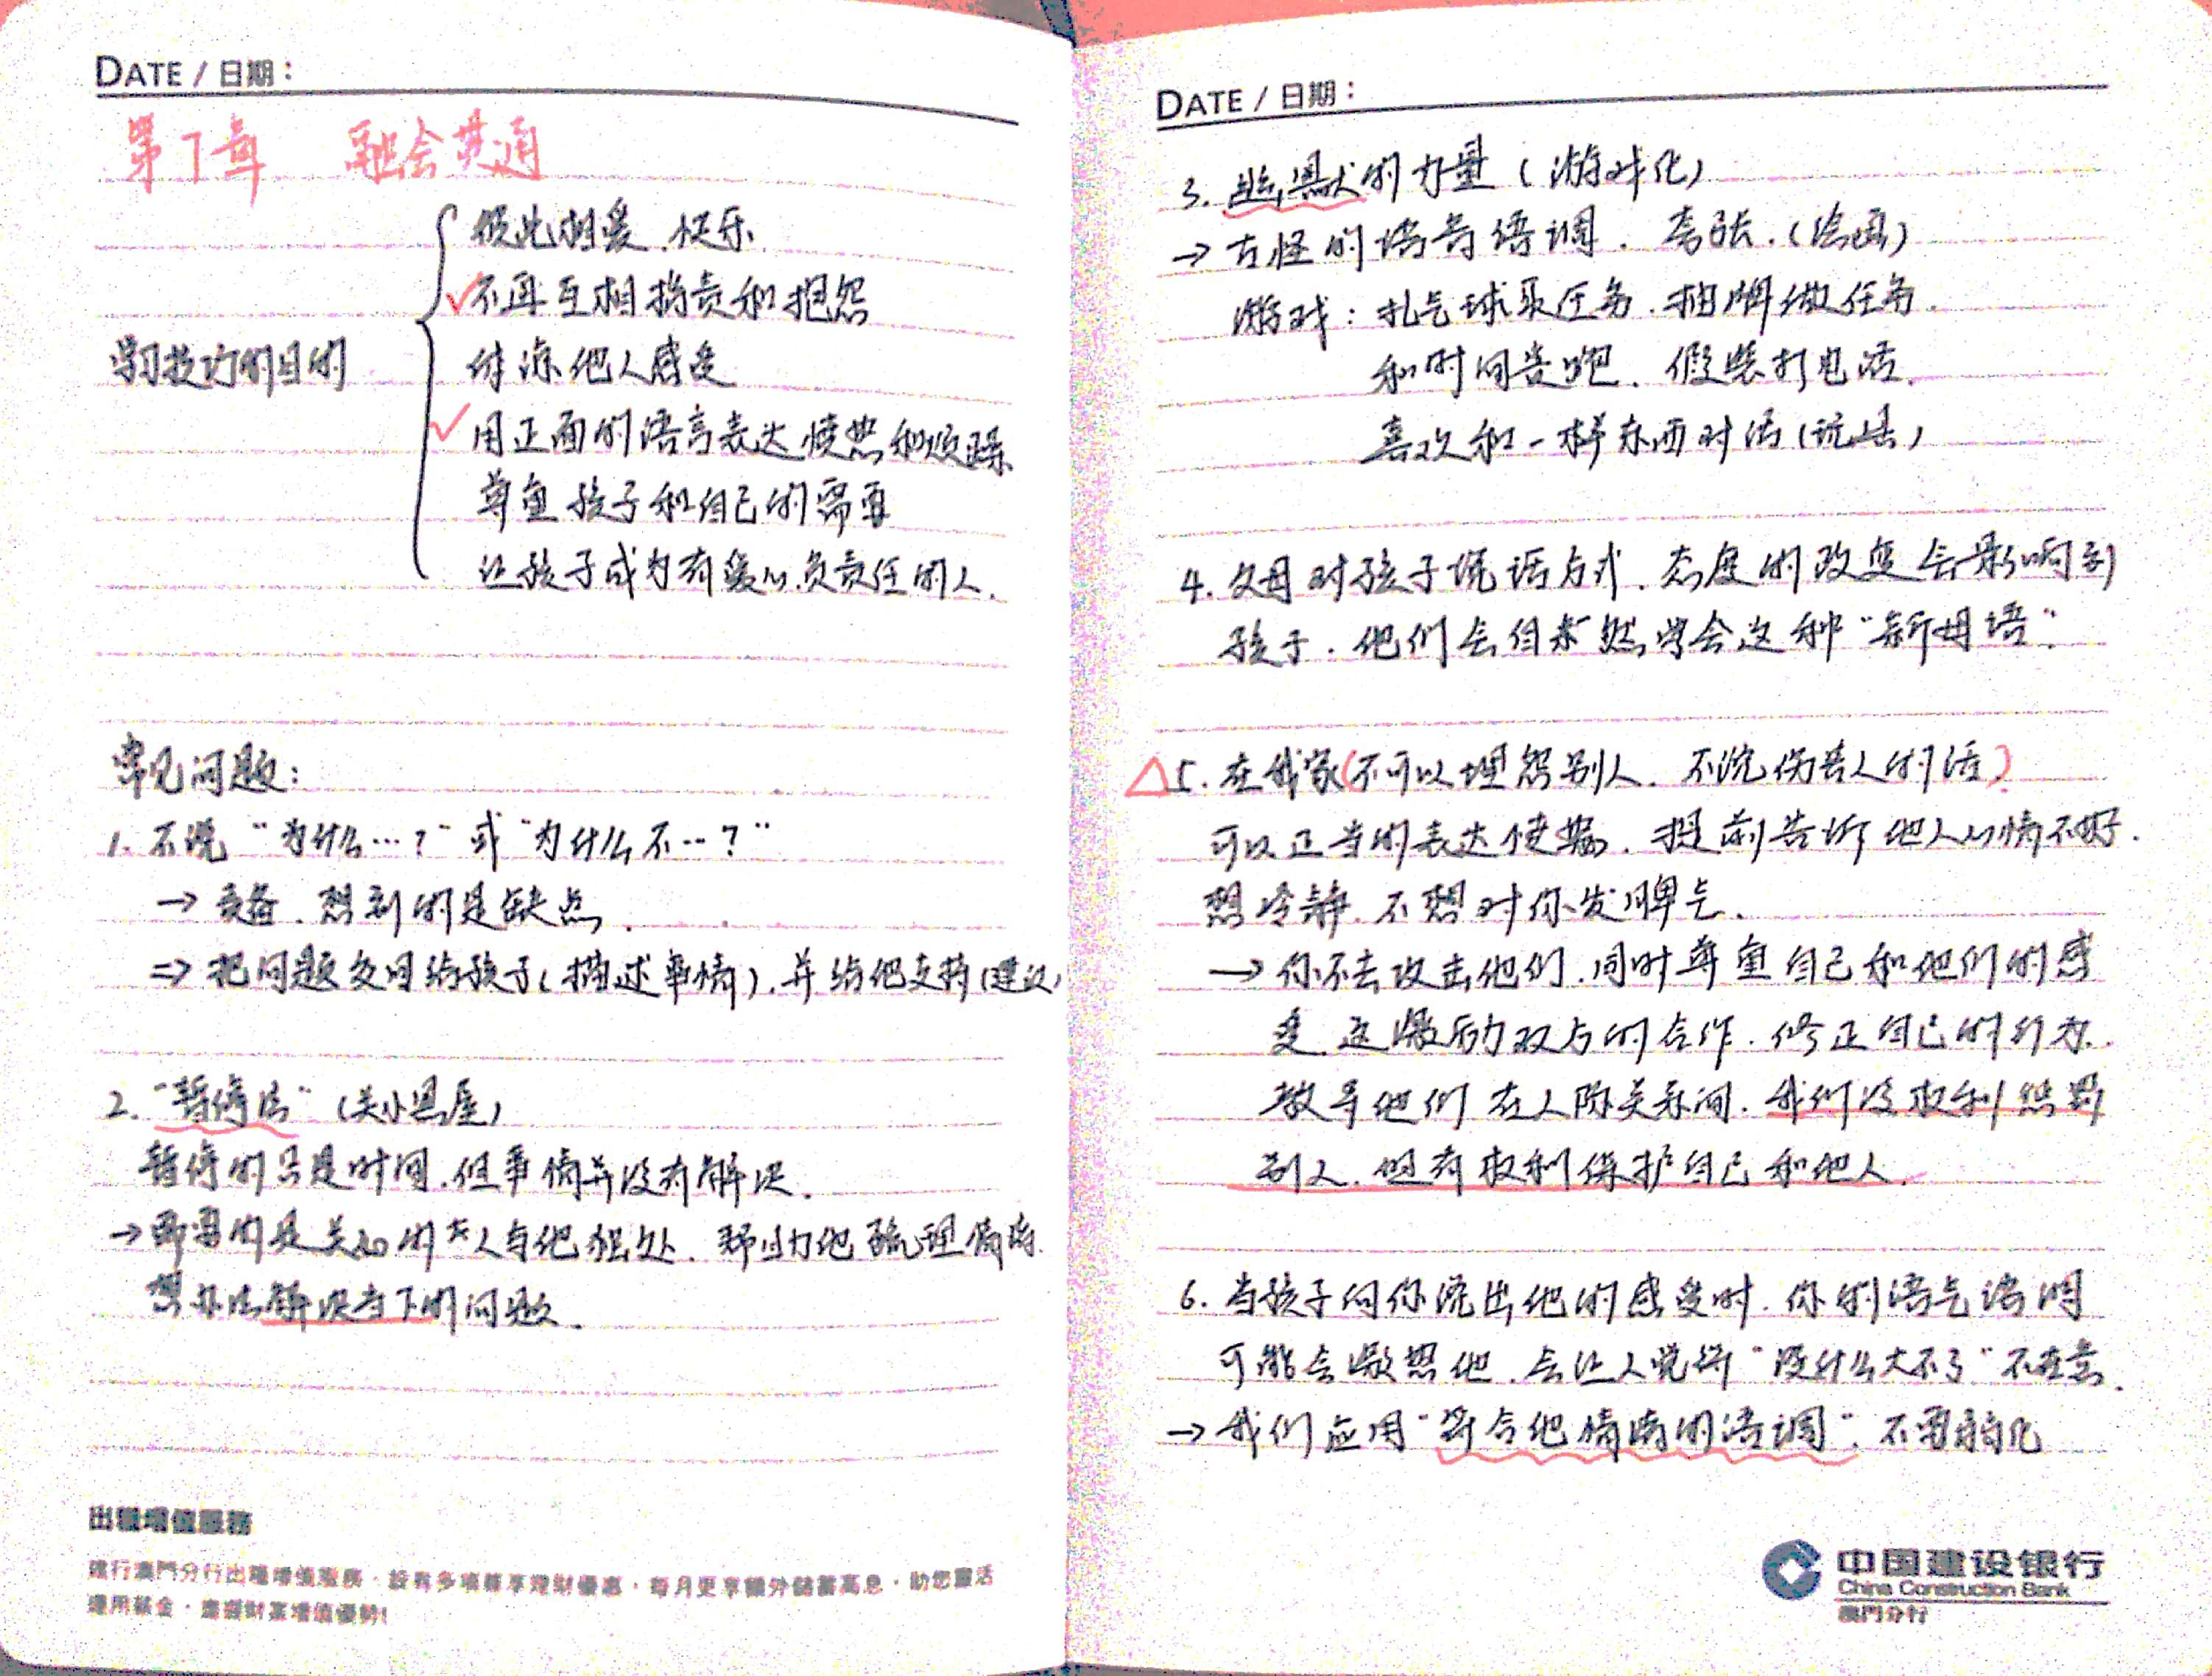 DATE / 日期：
第7章 融会贯通
学习技巧的目的
彼此相爱、快乐
✓不再互相指责和抱怨
体谅他人感受
✓用正面的语言表达愤怒和烦躁
尊重孩子和自己的需要
让孩子成为有爱心、负责任的人.
常见问题：
1. 不说“为什么…？”或“为什么不…？”
→ 责备、想到的是缺点.
⇒ 把问题交回给孩子（描述事情），并给他支持（建议）
2. “暂停法”（关小黑屋）
暂停的只是时间，但事情并没有解决.
→ 需要的是关心的大人与他独处、帮助他梳理情绪.
想办法解决当下的问题.
出糧增值服務
建行澳門分行出糧增值服務，設有多項尊享理財優惠，每月更享額外儲蓄高息，助您靈活
運用基金，盡握財富增值優勢!
DATE / 日期：
3. 幽默的力量（游戏化）
→ 古怪的语音语调、夸张.（绘画）
游戏：扎气球取任务、抽牌做任务.
和时间赛跑、假装打电话.
喜欢和一样东西对话（玩具）
4. 父母对孩子说话方式、态度的改变会影响到
孩子. 他们会自然学会这种“新母语”.
△5. 在我家（不可以埋怨别人、不说伤害人的话）
可以正当的表达愤怒、提前告诉他人心情不好.
想冷静、不想对你发脾气.
→ 你不去攻击他们、同时尊重自己和他们的感
受. 这激励双方的合作、修正自己的行为.
教导他们在人际关系间、我们没权利惩罚
别人、但有权利保护自己和他人.
6. 当孩子向你说出他的感受时、你的语气语调
可能会激怒他、会让人觉得“没什么大不了”不在意.
→ 我们应用“符合他情绪的语调”、不要弱化
中国建设银行
China Construction Bank
澳門分行